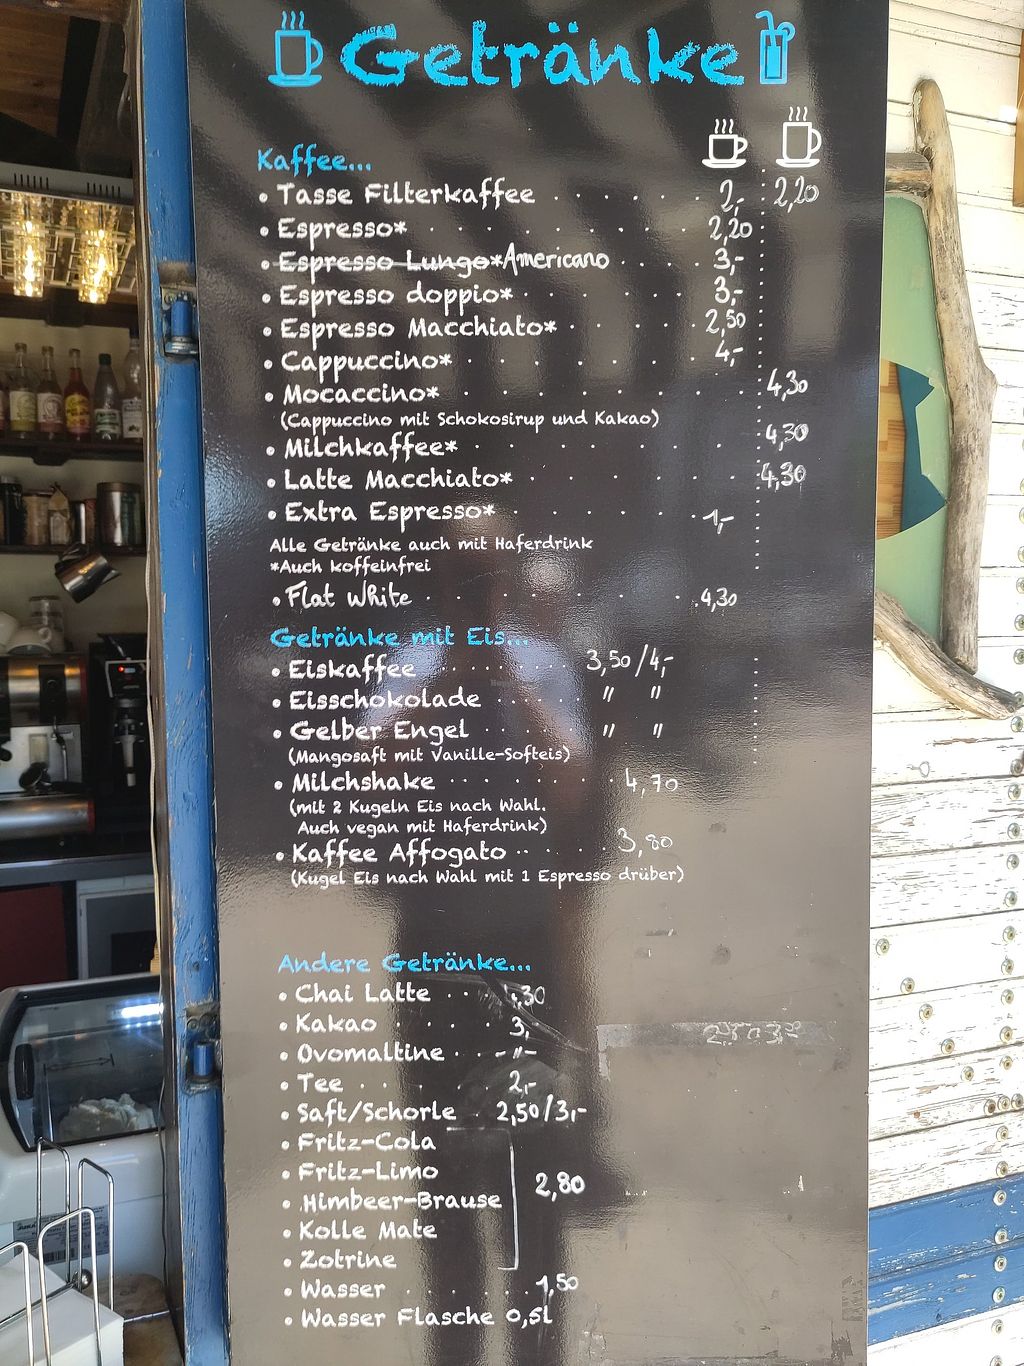 Getränke
Kaffee...
• Tasse Filterkaffee 2,- 2,20
• Espresso* 2,20
• Espresso Lungo* Americano 3,-
• Espresso doppio* 3,-
• Espresso Macchiato* 2,50
• Cappuccino* 4,-
• Mocaccino* 4,30
(Cappuccino mit Schokosirup und Kakao)
• Milchkaffee* 4,30
• Latte Macchiato* 4,30
• Extra Espresso* 1,-
Alle Getränke auch mit Haferdrink
*Auch koffeinfrei
• Flat White 4,30
Getränke mit Eis...
• Eiskaffee 3,50/4,-
• Eisschokolade " "
• Gelber Engel " "
(Mangosaft mit Vanille-Softeis)
• Milchshake 4,70
(mit 2 Kugeln Eis nach Wahl.
Auch vegan mit Haferdrink)
• Kaffee Affogato 3,80
(Kugel Eis nach Wahl mit 1 Espresso drüber)
Andere Getränke...
• Chai Latte 4,30
• Kakao 3,-
• Ovomaltine -"-
• Tee 2,-
• Saft/Schorle 2,50/3,-
• Fritz-Cola
• Fritz-Limo
• Himbeer-Brause 2,80
• Kolle Mate
• Zotrine
• Wasser 1,50
• Wasser Flasche 0,5l